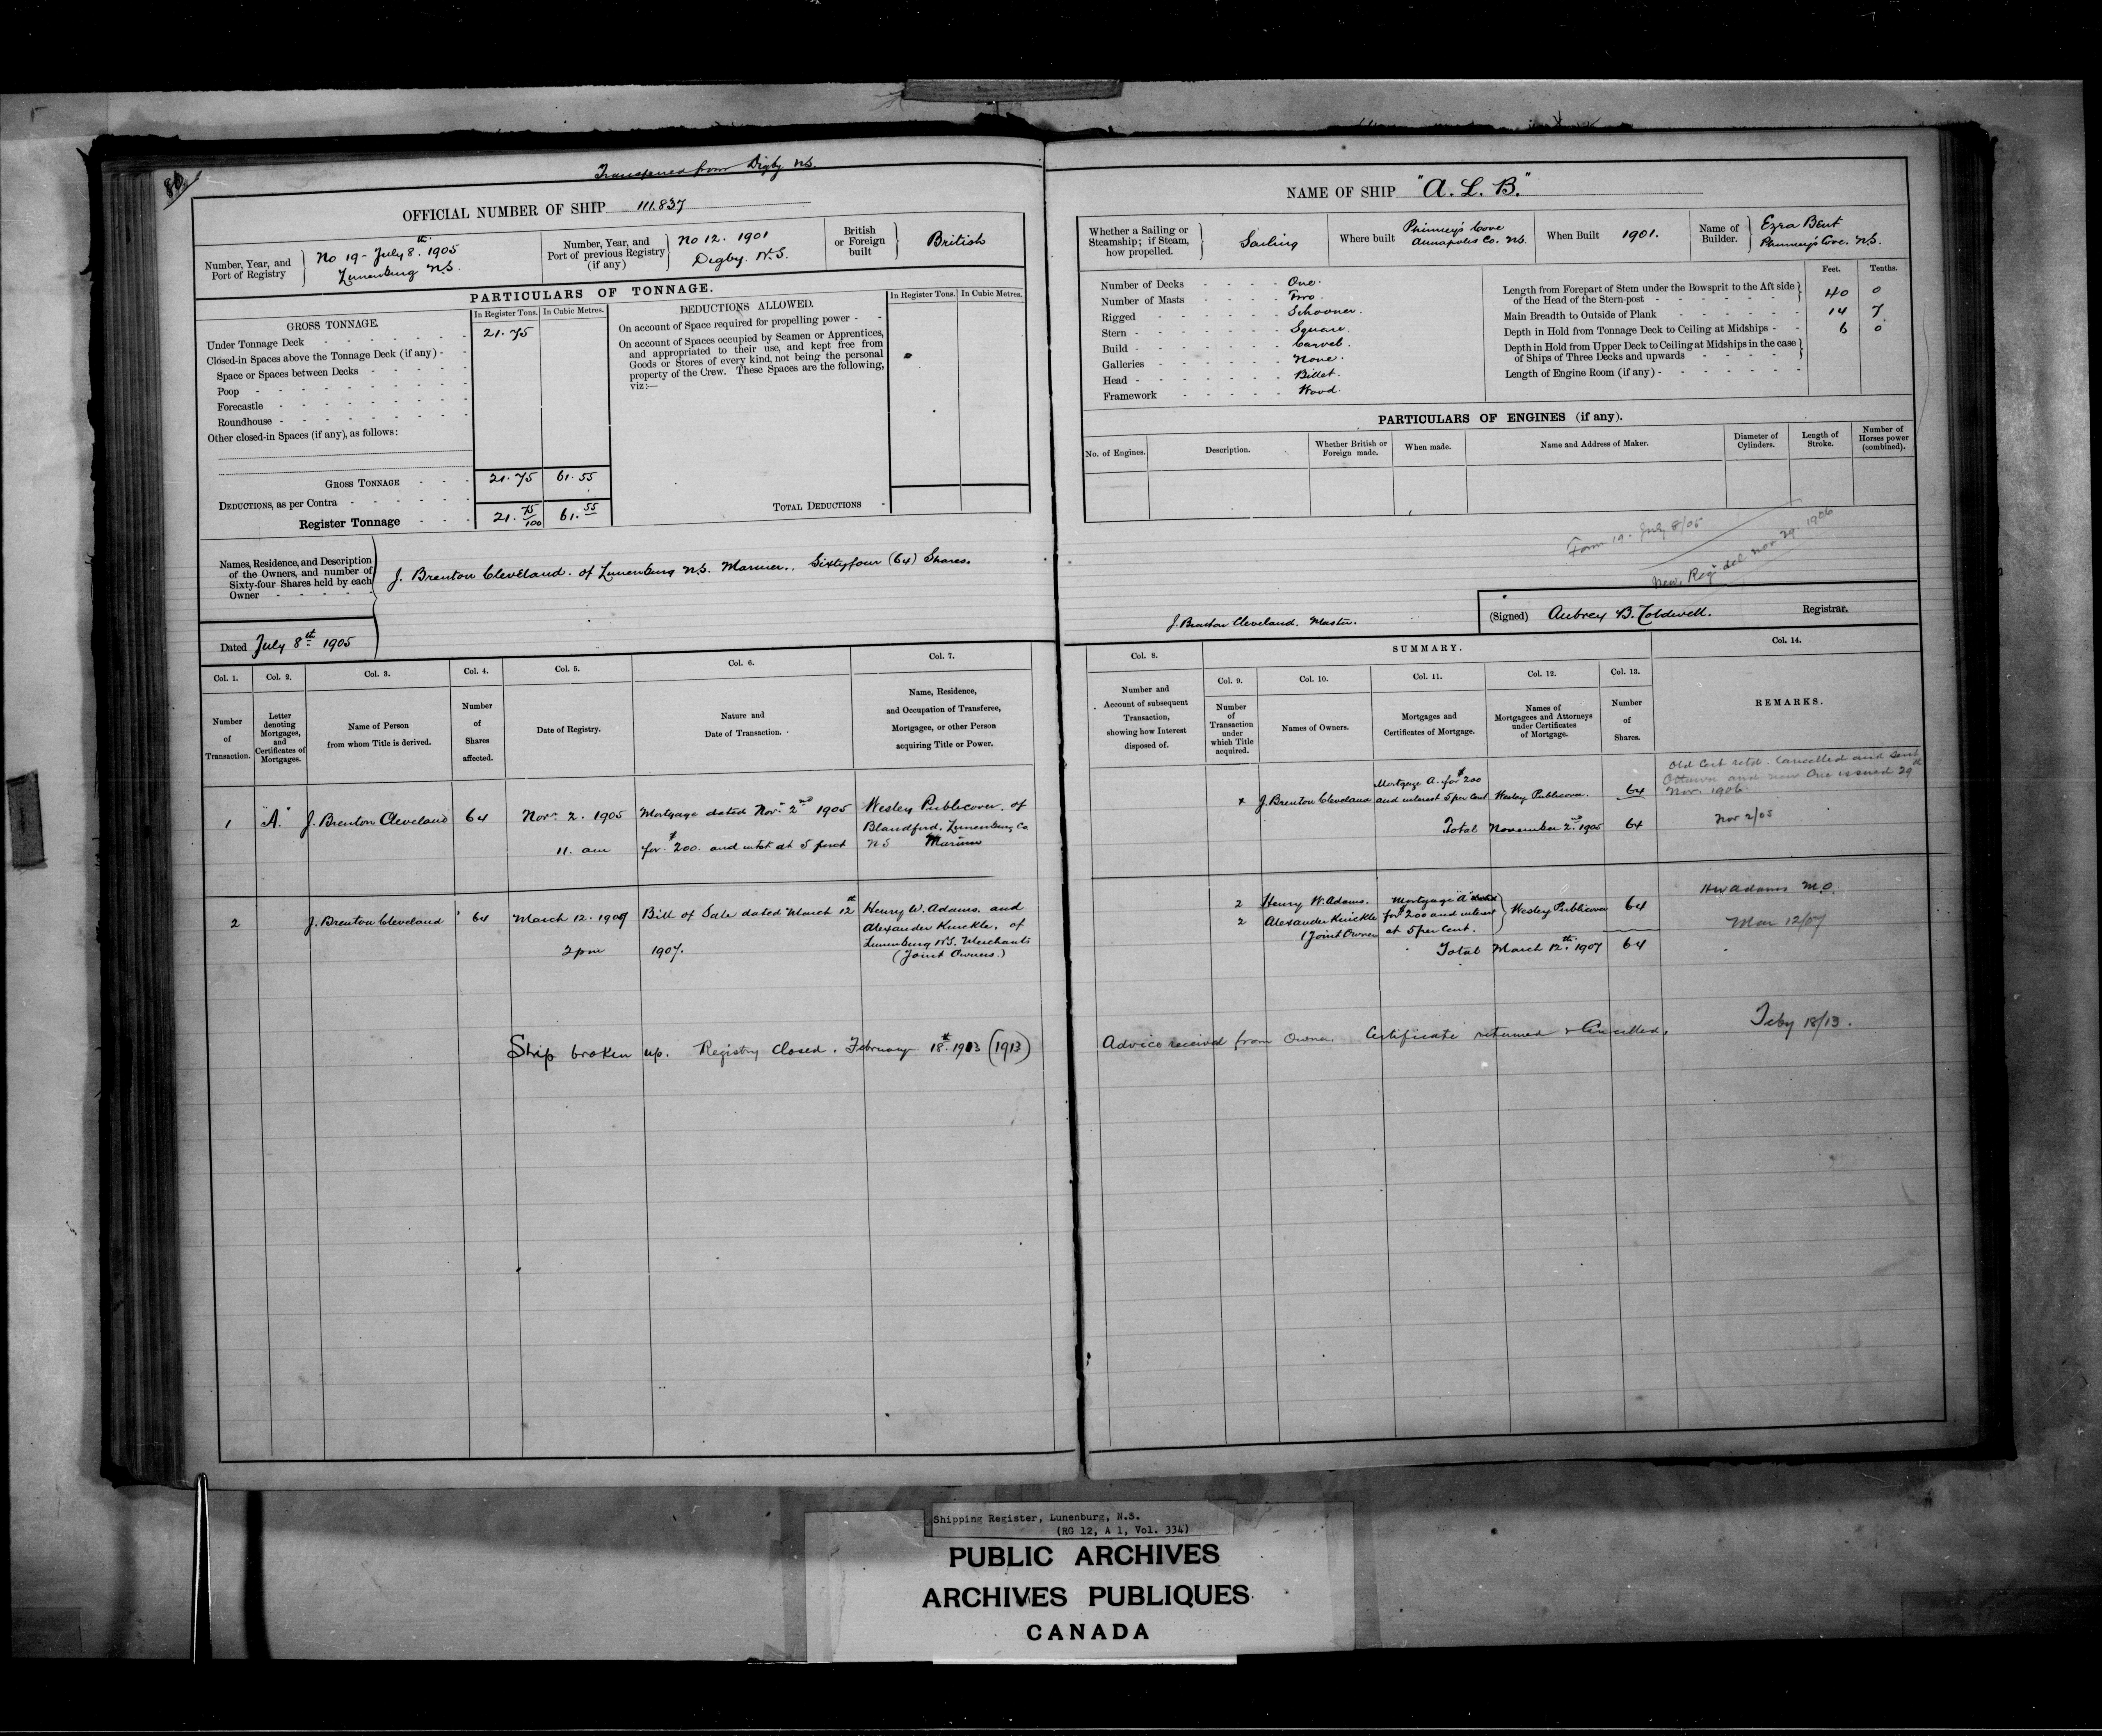 Transferred from Digby N.S.
OFFICIAL NUMBER OF SHIP 111.837
Number, Year, and Port of Registry } No 19 - July 8th. 1905
Lunenburg N.S.
Number, Year, and Port of previous Registry (if any) } No 12. 1901
Digby. N.S.
British or Foreign built } British
PARTICULARS OF TONNAGE.
GROSS TONNAGE.
In Register Tons. In Cubic Metres.
Under Tonnage Deck 21.75
Closed-in Spaces above the Tonnage Deck (if any) -
Space or Spaces between Decks
Poop
Forecastle
Roundhouse
Other closed-in Spaces (if any), as follows:
GROSS TONNAGE 21.75 61.55
DEDUCTIONS, as per Contra
Register Tonnage 21. 75/100 61. 55
DEDUCTIONS ALLOWED.
In Register Tons. In Cubic Metres.
On account of Space required for propelling power -
On account of Spaces occupied by Seamen or Apprentices,
and appropriated to their use, and kept free from
Goods or Stores of every kind, not being the personal
property of the Crew. These Spaces are the following,
viz:—
TOTAL DEDUCTIONS
Names, Residence, and Description
of the Owners, and number of
Sixty-four Shares held by each
Owner
J. Brenton Cleveland. of Lunenburg N.S. Mariner.. Sixtyfour (64) Shares.
Dated July 8th 1905
Col. 1. Col. 2. Col. 3. Col. 4. Col. 5. Col. 6. Col. 7.
Number of Transaction.
Letter denoting Mortgages, and Certificates of Mortgages.
Name of Person from whom Title is derived.
Number of Shares affected.
Date of Registry.
Nature and Date of Transaction.
Name, Residence, and Occupation of Transferee, Mortgagee, or other Person acquiring Title or Power.
1 "A." J. Brenton Cleveland 64 Novr. 2. 1905 Mortgage dated Novr. 2nd 1905 Wesley Publicover. of
Blandford. Lunenburg Co
11. am for $200. and intst at 5 pcent N S Mariner
2 J. Brenton Cleveland 64 March 12. 1907 Bill of Sale dated March 12th Henry W. Adams. and
Alexander Knickle, of
Lunenburg N.S. Merchants
2 pm 1907. (Joint Owners.)
Ship broken up. Registry Closed. February 18th. 1913 (1913)
NAME OF SHIP "A. L. B."
Whether a Sailing or Steamship; if Steam, how propelled. } Sailing
Where built Phinney's Cove
Annapolis Co. N.S.
When Built 1901.
Name of Builder. } Ezra Bent
Phinney's Cove. N.S.
Number of Decks One.
Number of Masts Two.
Rigged Schooner.
Stern Square.
Build Carvel.
Galleries None.
Head Billet.
Framework Wood.
Feet. Tenths.
Length from Forepart of Stem under the Bowsprit to the Aft side
of the Head of the Stern-post 40 0
Main Breadth to Outside of Plank 14 7
Depth in Hold from Tonnage Deck to Ceiling at Midships - 6 0
Depth in Hold from Upper Deck to Ceiling at Midships in the case
of Ships of Three Decks and upwards
Length of Engine Room (if any) -
PARTICULARS OF ENGINES (if any).
No. of Engines. Description. Whether British or Foreign made. When made. Name and Address of Maker. Diameter of Cylinders. Length of Stroke. Number of Horses power (combined).
Form 19. July 8/05
New. Reg del Nov 29 1906
J. Brenton Cleveland. Master.
(Signed) Aubrey B. Caldwell. Registrar.
Col. 8. SUMMARY. Col. 14.
Col. 9. Col. 10. Col. 11. Col. 12. Col. 13.
Number and Account of subsequent Transaction, showing how Interest disposed of.
Number of Transaction under which Title acquired.
Names of Owners.
Mortgages and Certificates of Mortgage.
Names of Mortgagees and Attorneys under Certificates of Mortgage.
Number of Shares.
REMARKS.
Old Cert retd. Cancelled and sent
Ottawa and new One issued 29th
Nov. 1906.
Mortgage A. for $200
J. Brenton Cleveland and interest 5 per cent Wesley Publicover. 64
Total November 2nd. 1905 64 Nov 2/05
H W Adams M.O.
2 Henry W. Adams. Mortgage "A"
2 Alexander Knickle for $200 and interest } Wesley Publicover 64
(Joint Owner at 5 per Cent.
Mar 12/07
Total March 12th. 1907 64
Advice received from Owner. Certificate returned & Cancelled. Feby 18/13.
Shipping Register, Lunenburg, N.S.
(RG 12, A 1, Vol. 334)
PUBLIC ARCHIVES
ARCHIVES PUBLIQUES
CANADA